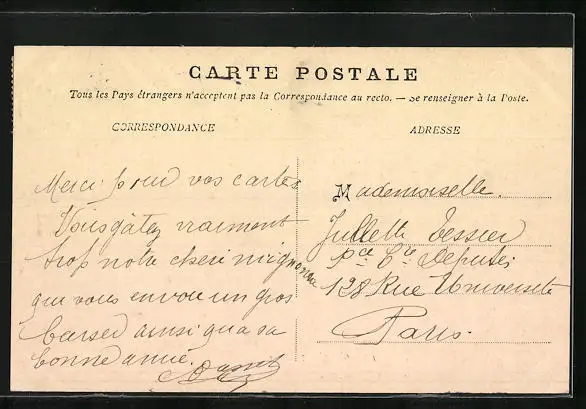 CARTE POSTALE
Tous les Pays étrangers n'acceptent pas la Correspondance au recto. — Se renseigner à la Poste.
CORRESPONDANCE
ADRESSE
Merci pour vos cartes
Vous gâtez vraiment
trop notre cheri mignonne
que vous envou un gros
baiser ainsi qua sa
bonne amie.
Mademoiselle
Juliette Tessier
Députés
128 Rue Université
Paris